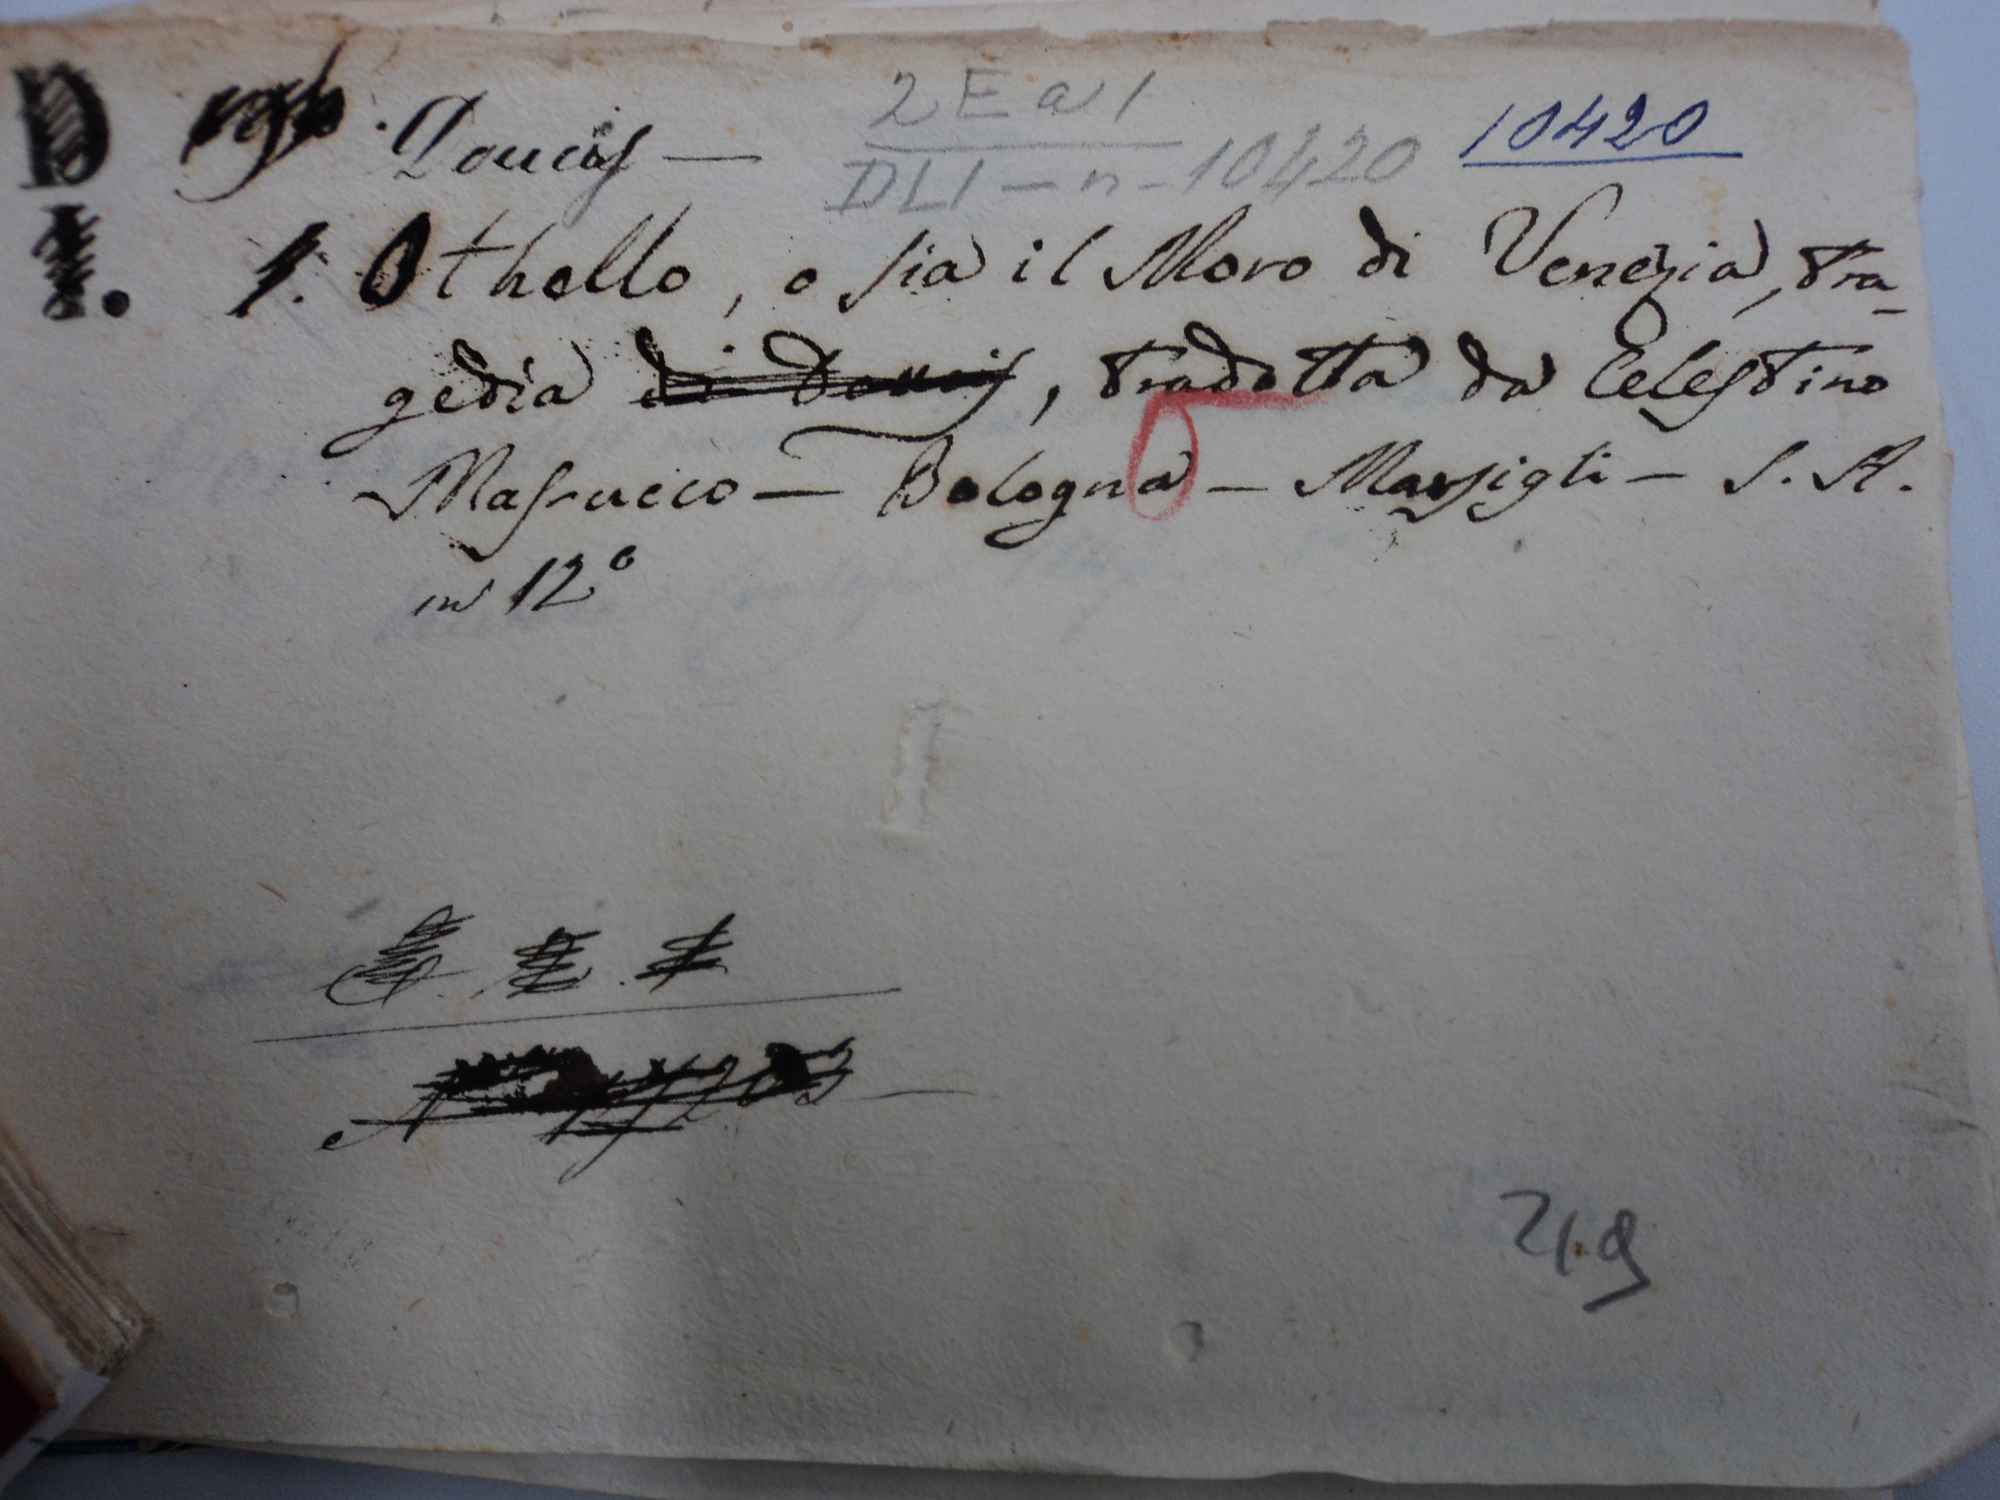 D
I.
Doucis — 2 E a 1 10420
DLI - n - 10420
1. Othello, o sia il Moro di Venezia, tra-
gedia di Doucis, tradotta da Celestino
Massucco — Bologna — Marsigli — S. A.
in 12°